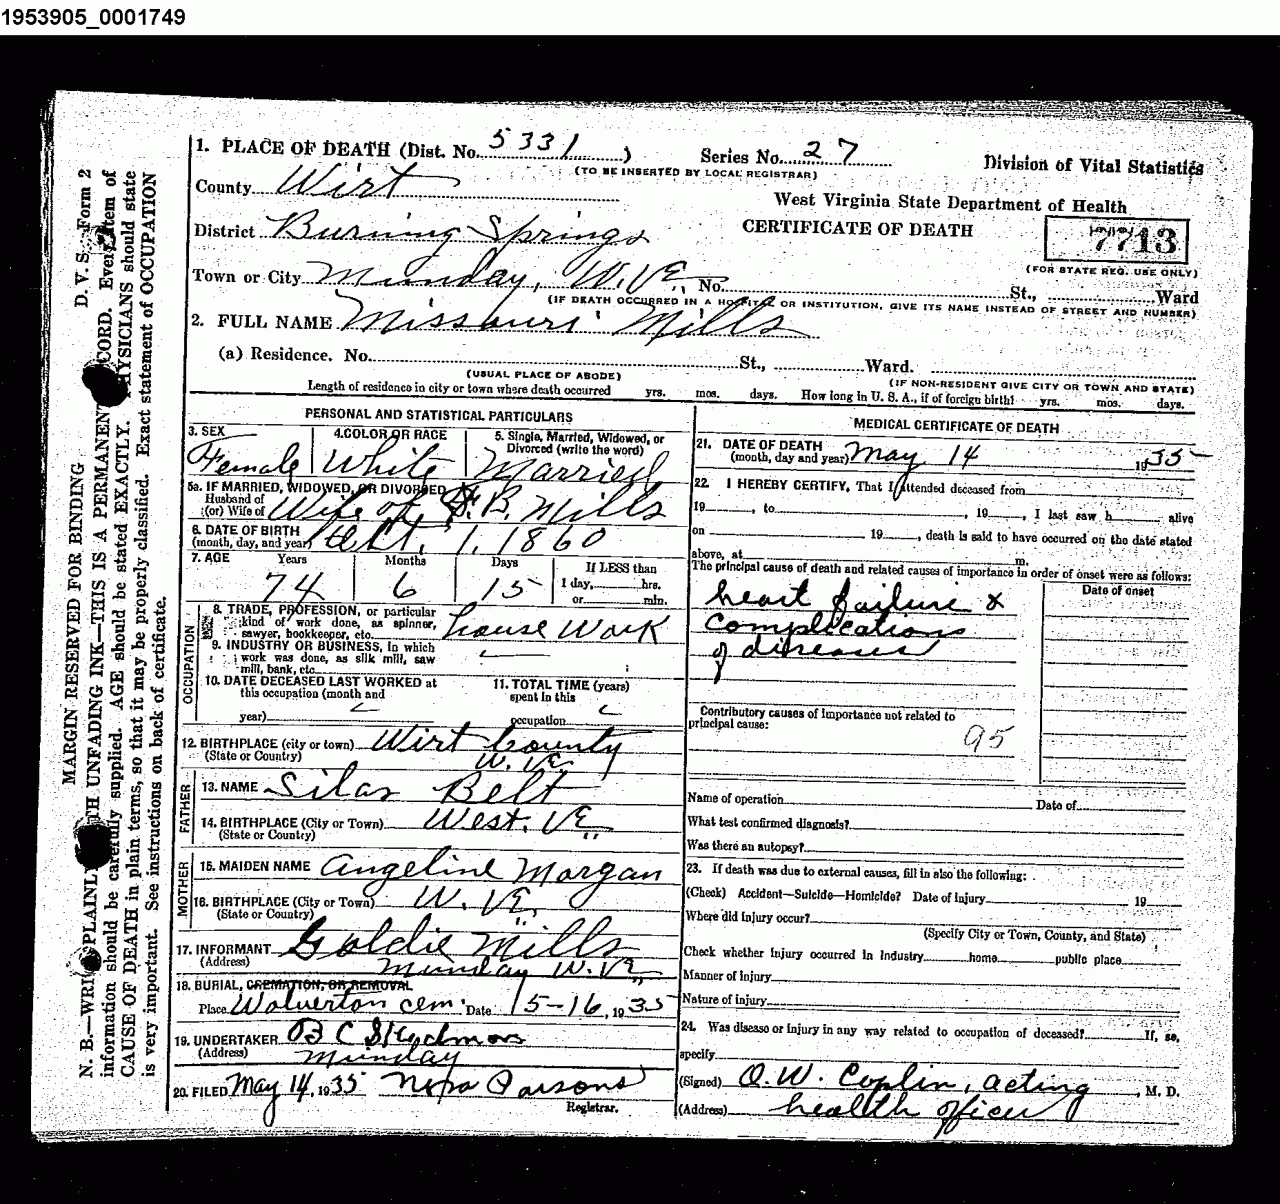 1953905_0001749
1. PLACE OF DEATH (Dist. No. 5331) Series No. 27 Division of Vital Statistics
(TO BE INSERTED BY LOCAL REGISTRAR)
County Wirt West Virginia State Department of Health
District Burning Springs CERTIFICATE OF DEATH 7713
(FOR STATE REG. USE ONLY)
Town or City Munday, W.Va. No. St., Ward
(IF DEATH OCCURRED IN A HOSPITAL OR INSTITUTION, GIVE ITS NAME INSTEAD OF STREET AND NUMBER)
2. FULL NAME Missouri Mills
(a) Residence. No. St., Ward.
(USUAL PLACE OF ABODE) (IF NON-RESIDENT GIVE CITY OR TOWN AND STATE)
Length of residence in city or town where death occurred yrs. mos. days. How long in U. S. A., if of foreign birth? yrs. mos. days.
PERSONAL AND STATISTICAL PARTICULARS
3. SEX 4. COLOR OR RACE 5. Single, Married, Widowed, or
Divorced (write the word)
Female White Married
5a. IF MARRIED, WIDOWED, OR DIVORCED
Husband of
(or) Wife of Wife of F. B. Mills
6. DATE OF BIRTH
(month, day, and year) Oct. 1, 1860
7. AGE Years Months Days If LESS than
74 6 15 1 day, hrs.
or min.
OCCUPATION
8. TRADE, PROFESSION, or particular
kind of work done, as spinner,
sawyer, bookkeeper, etc. house work
9. INDUSTRY OR BUSINESS, in which
work was done, as silk mill, saw
mill, bank, etc.
10. DATE DECEASED LAST WORKED at
this occupation (month and
year)
11. TOTAL TIME (years)
spent in this
occupation
12. BIRTHPLACE (city or town) Wirt County
(State or Country) W. Va.
FATHER
13. NAME Silas Belt
14. BIRTHPLACE (City or Town) West. Va.
(State or Country)
MOTHER
15. MAIDEN NAME Angeline Morgan
16. BIRTHPLACE (City or Town) W. Va.
(State or Country)
17. INFORMANT Goldie Mills
(Address) Munday W. Va.
18. BURIAL, CREMATION, OR REMOVAL
Place Wolverton cem. Date 5-16, 1935
19. UNDERTAKER B C
(Address) Munday
20. FILED May 14, 1935 Nora Parsons
Registrar.
MEDICAL CERTIFICATE OF DEATH
21. DATE OF DEATH
(month, day and year) May 14 1935
22. I HEREBY CERTIFY, That I attended deceased from
19, to, 19, I last saw h alive
on 19, death is said to have occurred on the date stated
above, at m.
The principal cause of death and related causes of importance in order of onset were as follows:
Date of onset
heart failure &
complications
of diseases
Contributory causes of importance not related to
principal cause:
95
Name of operation Date of
What test confirmed diagnosis?
Was there an autopsy?
23. If death was due to external causes, fill in also the following:
(Check) Accident—Suicide—Homicide? Date of injury 19
Where did injury occur?
(Specify City or Town, County, and State)
Check whether injury occurred in industry home public place
Manner of injury
Nature of injury
24. Was disease or injury in any way related to occupation of deceased? If, so,
specify
(Signed) O. W. Coplin, acting, M. D.
(Address) health officer
MARGIN RESERVED FOR BINDING D. V. S. Form 2
N. B.—WRITE PLAINLY WITH UNFADING INK—THIS IS A PERMANENT RECORD. Every item of
information should be carefully supplied. AGE should be stated EXACTLY. PHYSICIANS should state
CAUSE OF DEATH in plain terms, so that it may be properly classified. Exact statement of OCCUPATION
is very important. See instructions on back of certificate.